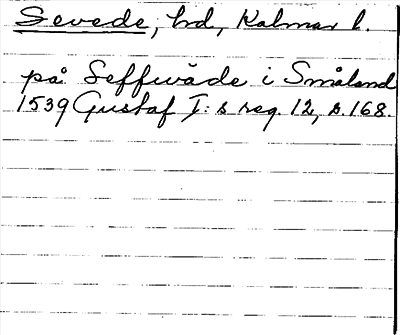 Sevede, hd, Kalmar l.
på Seffwåde i Småland
1539 Gustaf I:s reg. 12, s. 168.